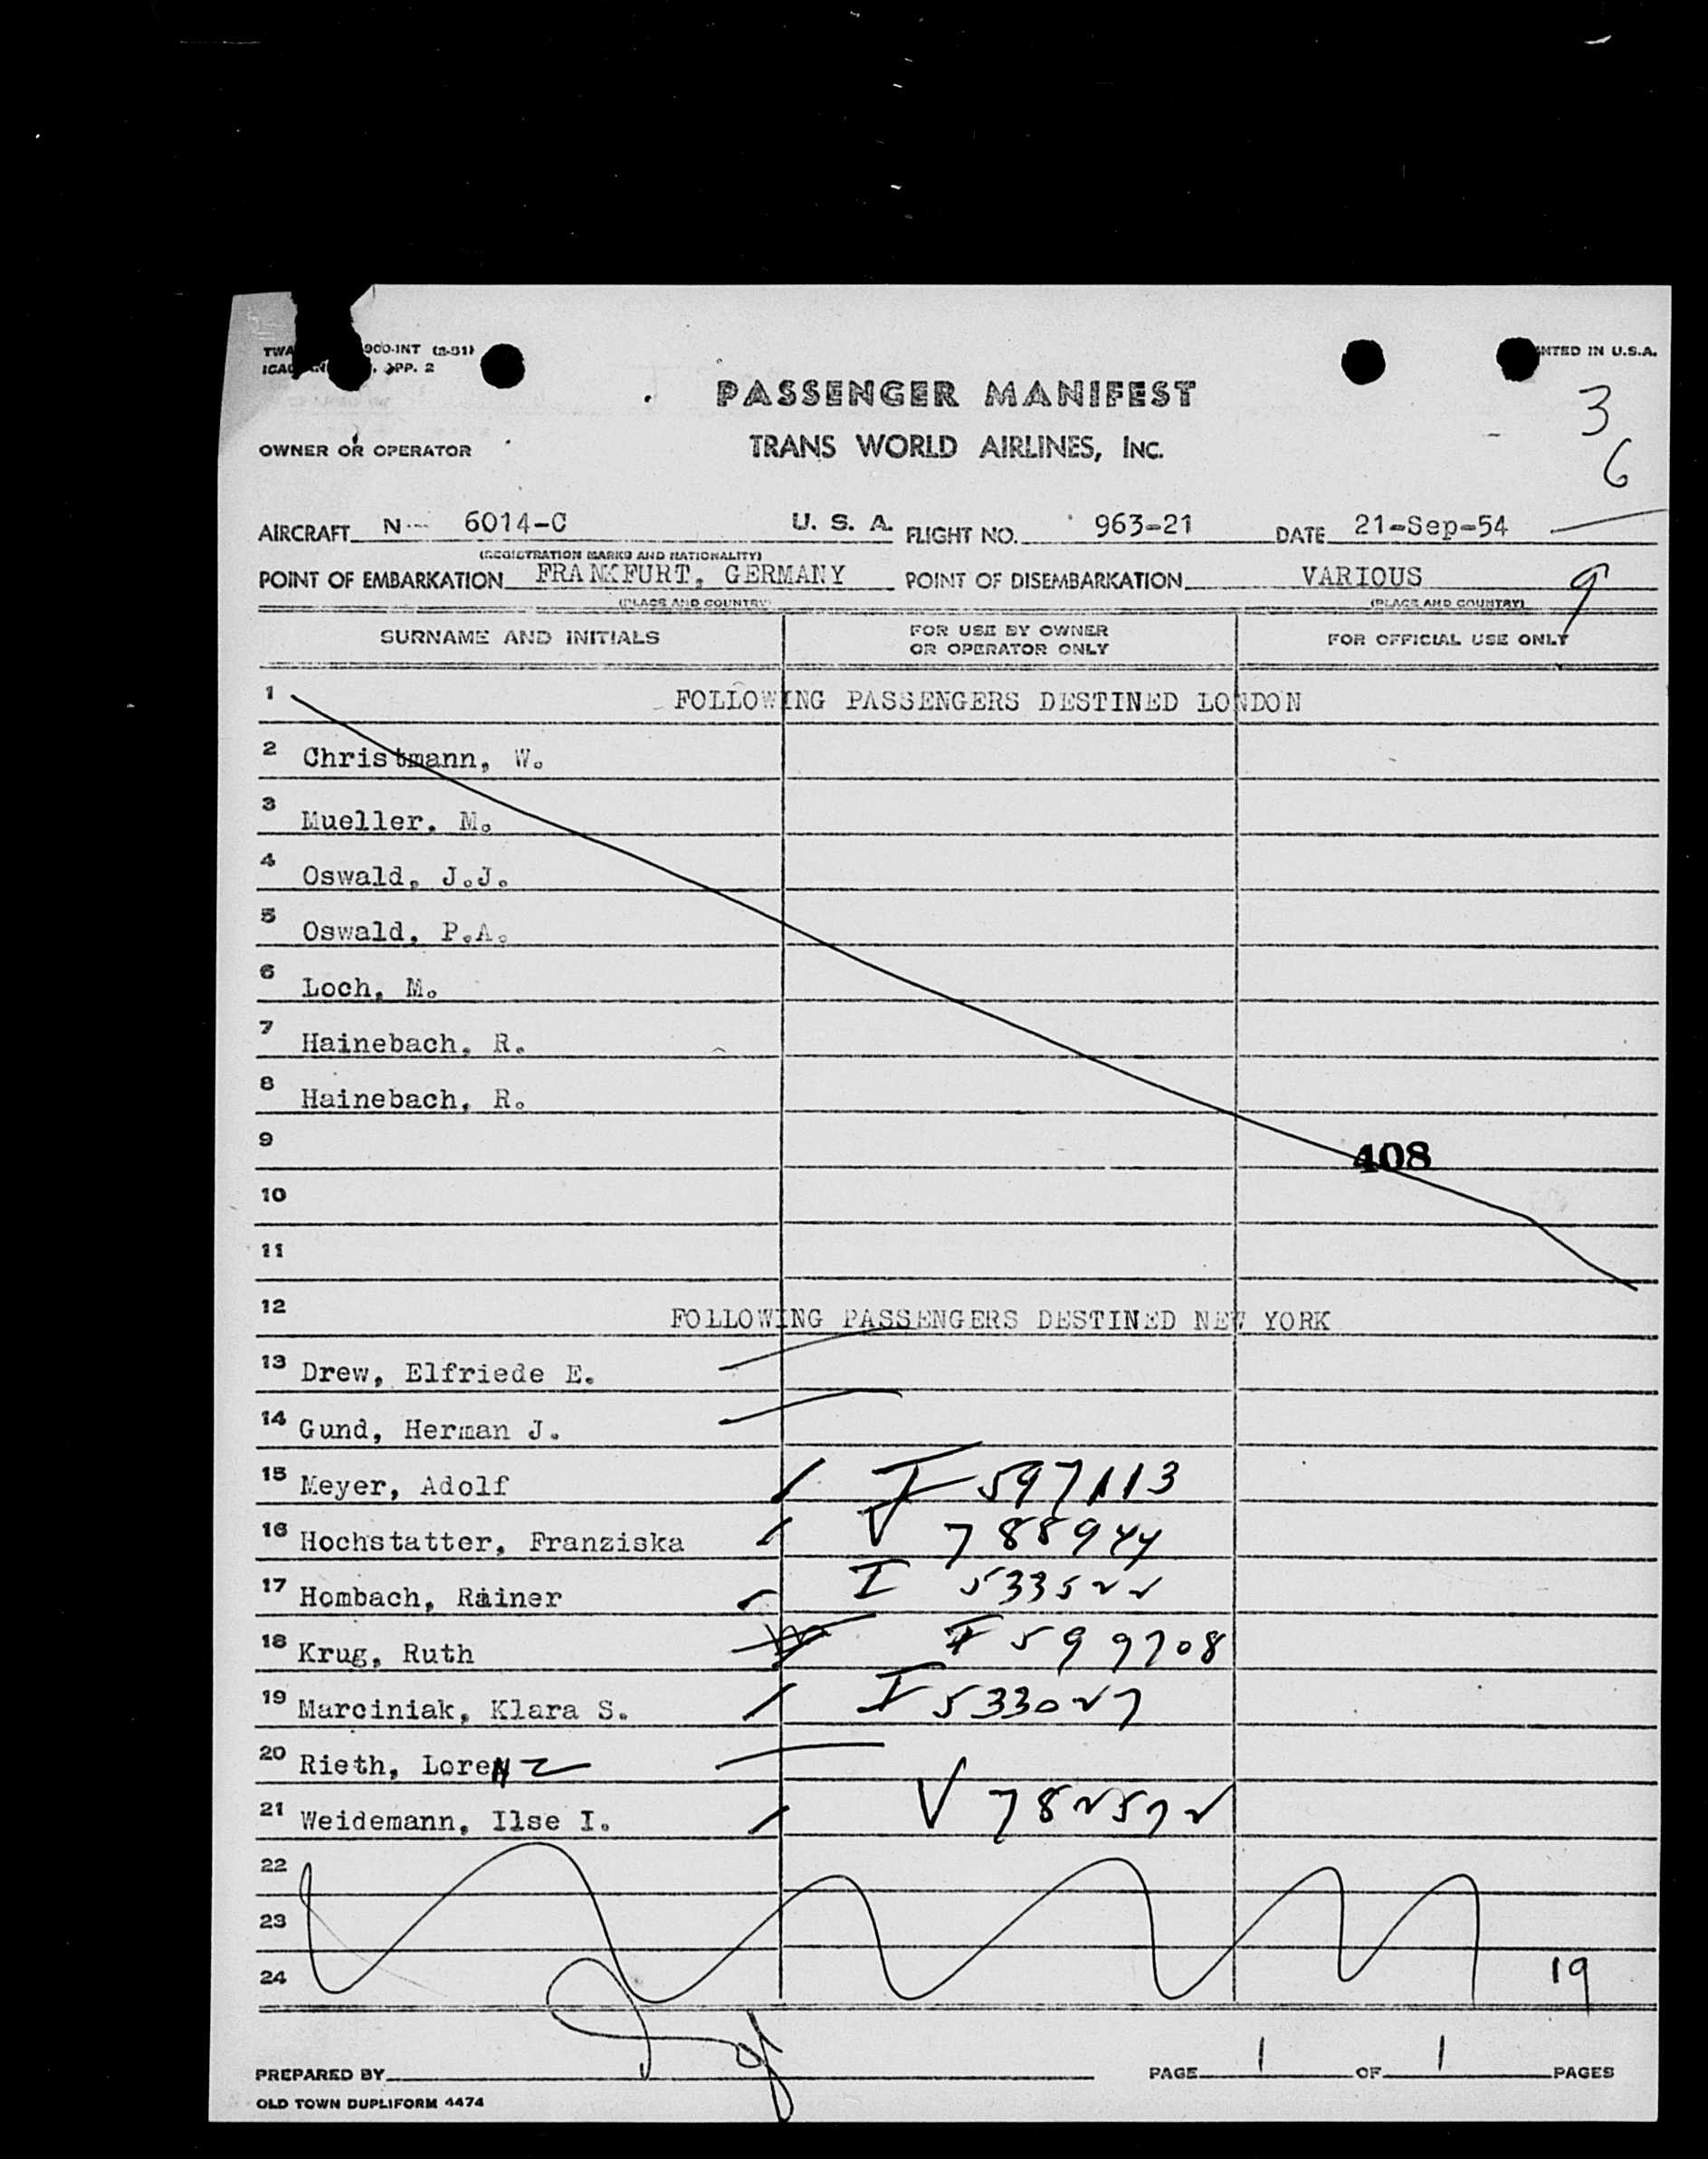 TWA 900-INT (2-51)
APP. 2
PRINTED IN U.S.A.
PASSENGER MANIFEST
TRANS WORLD AIRLINES, INC.
3
6
9
OWNER OR OPERATOR
AIRCRAFT N 6014-C U. S. A. FLIGHT NO. 963-21 DATE 21-Sep-54
(REGISTRATION MARKS AND NATIONALITY)
POINT OF EMBARKATION FRANKFURT, GERMANY POINT OF DISEMBARKATION VARIOUS
(PLACE AND COUNTRY) (PLACE AND COUNTRY)
SURNAME AND INITIALS FOR USE BY OWNER OR OPERATOR ONLY FOR OFFICIAL USE ONLY
1 FOLLOWING PASSENGERS DESTINED LONDON
2 Christmann, W.
3 Mueller. M.
4 Oswald, J.J.
5 Oswald, P.A.
6 Loch, M.
7 Hainebach, R.
8 Hainebach, R.
9 408
10
11
12 FOLLOWING PASSENGERS DESTINED NEW YORK
13 Drew, Elfriede E.
14 Gund, Herman J.
15 Meyer, Adolf I 597113
16 Hochstatter, Franziska V 788944
17 Hombach, Rainer I 533522
18 Krug, Ruth I 599708
19 Marciniak, Klara S. I 533027
20 Rieth, Lorenz
21 Weidemann, Ilse I. V 782572
22
23
24 19
PREPARED BY PAGE 1 OF 1 PAGES
OLD TOWN DUPLIFORM 4474